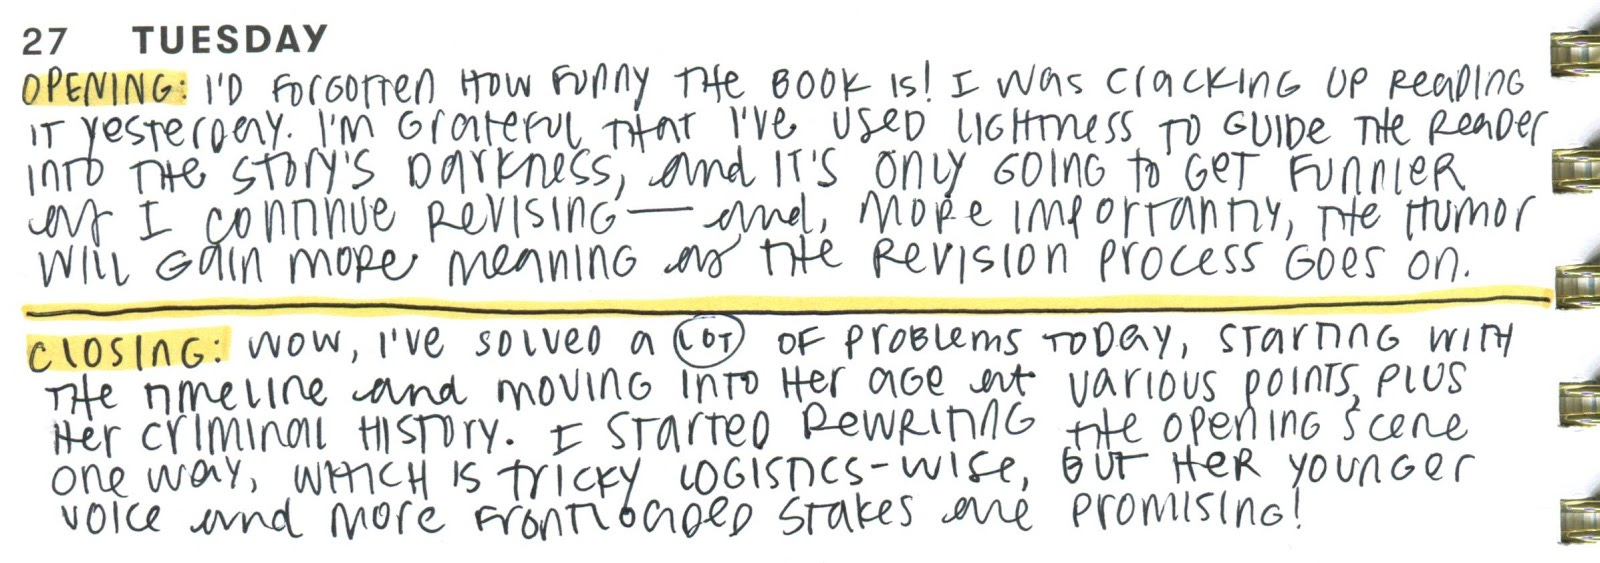 27 TUESDAY
OPENING: I'D FORGOTTEN HOW FUNNY THE BOOK IS! I WAS CRACKING UP READING
IT YESTERDAY. I'M GRATEFUL THAT I'VE USED LIGHTNESS TO GUIDE THE READER
INTO THE STORY'S DARKNESS, and IT'S ONLY GOING to GET FUNNIER
as I CONTINUE REVISING — and, MORE IMPORTANTLY, THE HUMOR
WILL GAIN MORE MEANING as THE REVISION PROCESS GOES ON.
CLOSING: WOW, I'VE SOLVED A LOT OF PROBLEMS TODAY, STARTING WITH
THE TIMELINE and MOVING INTO HER AGE at VARIOUS POINTS, PLUS
HER CRIMINAL HISTORY. I STARTED REWRITING THE OPENING SCENE
ONE WAY, WHICH IS TRICKY LOGISTICS-WISE, BUT HER YOUNGER
VOICE and MORE FRONTLOADED STAKES are PROMISING!